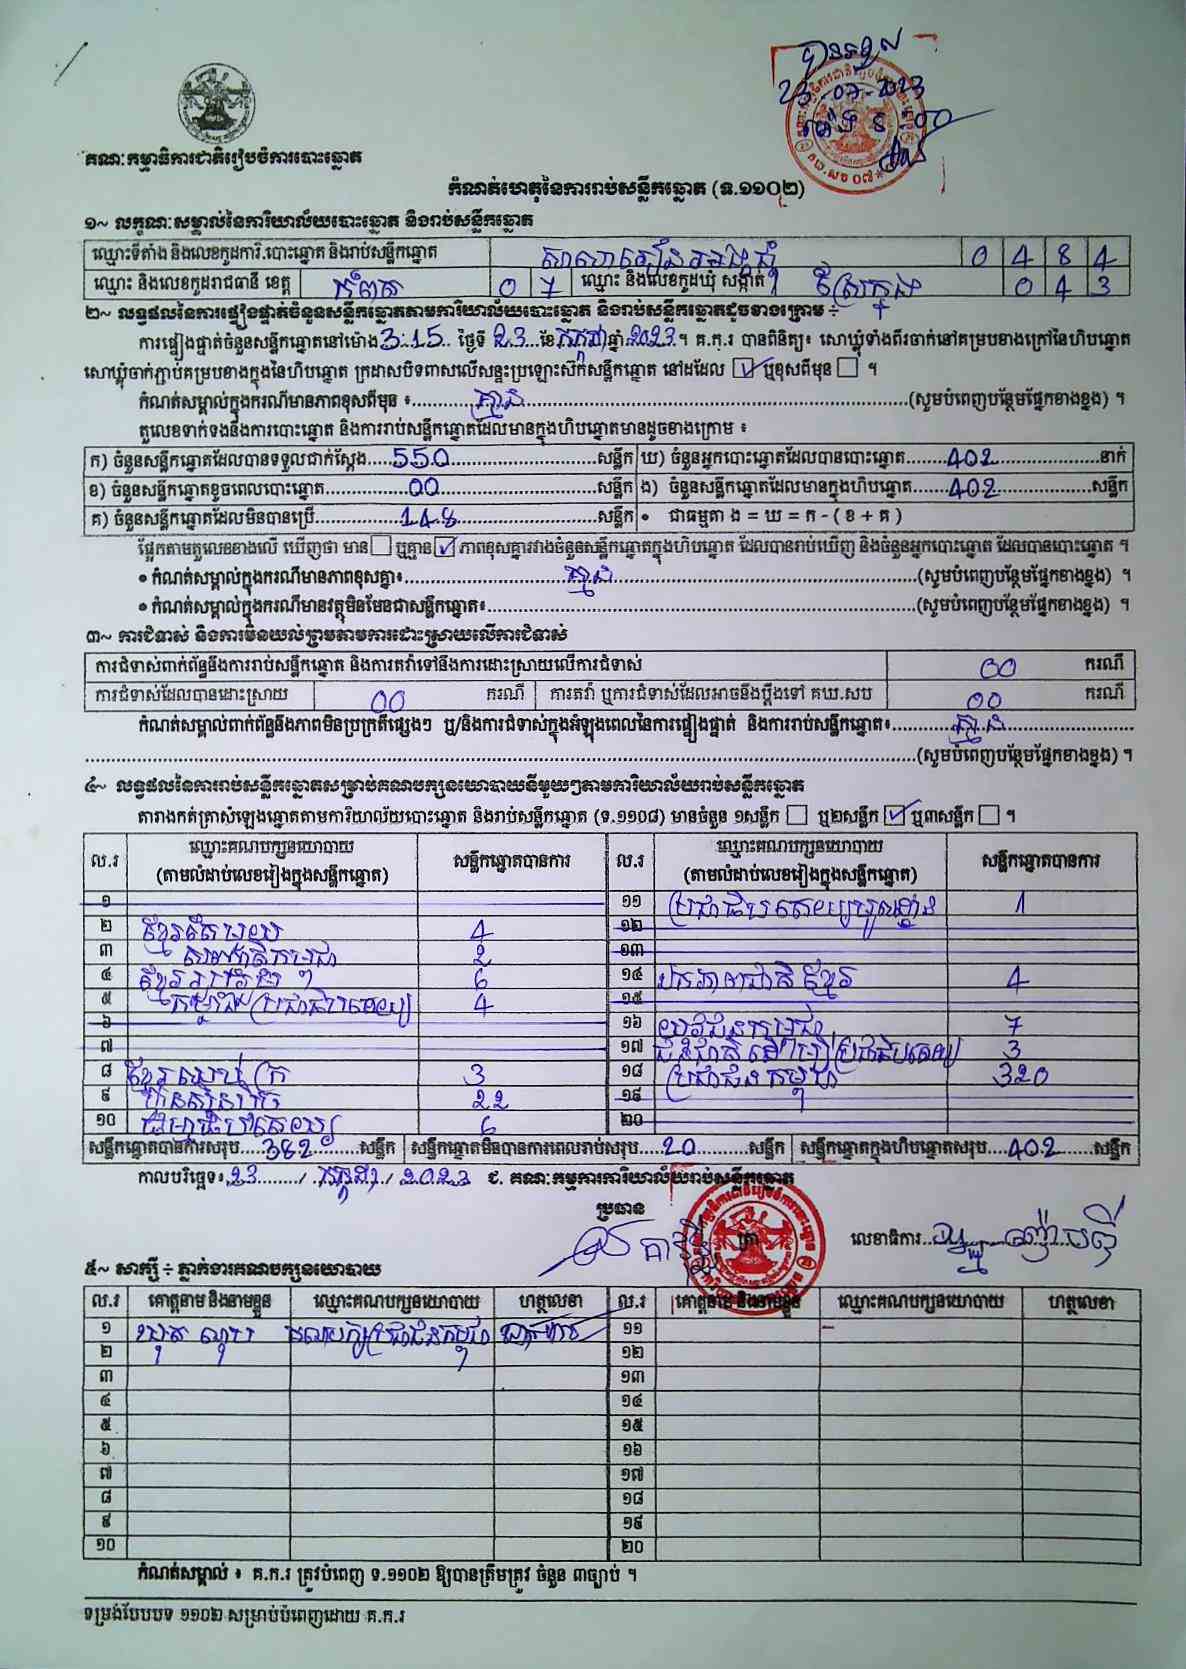 បានទទួល
23-07-2023
គណៈកម្មាធិការជាតិរៀបចំការបោះឆ្នោត
កំណត់ហេតុនៃការរាប់សន្លឹកឆ្នោត (ទ.១១០២)
១~ លក្ខណៈសម្គាល់នៃការិយាល័យបោះឆ្នោត និងរាប់សន្លឹកឆ្នោត
ឈ្មោះទីតាំង និងលេខកូដការិ.បោះឆ្នោត និងរាប់សន្លឹកឆ្នោត 0 4 8 4
ឈ្មោះ និងលេខកូដរាជធានី ខេត្ត កំពត 0 7 ឈ្មោះ និងលេខកូដឃុំ សង្កាត់ ស្រែក្នុង 0 4 3
២~ លទ្ធផលនៃការផ្ទៀងផ្ទាត់ចំនួនសន្លឹកឆ្នោតតាមការិយាល័យបោះឆ្នោត និងរាប់សន្លឹកឆ្នោតដូចខាងក្រោម ÷
ការផ្ទៀងផ្ទាត់ចំនួនសន្លឹកឆ្នោតនៅម៉ោង 3:15 ថ្ងៃទី 23 ខែកក្កដា ឆ្នាំ 2023 ។ គ.ក.រ បានពិនិត្យ៖ សោឃ្លុំទាំងពីរចាក់នៅគម្របខាងក្រៅនៃហិបឆ្នោត
សោឃ្លុំចាក់ភ្ជាប់គម្របខាងក្នុងនៃហិបឆ្នោត ក្រដាសបិទពាសលើសន្ទះប្រឡោះស៊កសន្លឹកឆ្នោត នៅដដែល ☑ ឬខុសពីមុន ☐ ។
កំណត់សម្គាល់ក្នុងករណីមានភាពខុសពីមុន ៖ គ្មាន (សូមបំពេញបន្ថែមផ្នែកខាងខ្នង) ។
តួលេខទាក់ទងនឹងការបោះឆ្នោត និងការរាប់សន្លឹកឆ្នោតដែលមានក្នុងហិបឆ្នោតមានដូចខាងក្រោម ៖
ក) ចំនួនសន្លឹកឆ្នោតដែលបានទទួលជាក់ស្តែង 550 សន្លឹក ឃ) ចំនួនអ្នកបោះឆ្នោតដែលបានបោះឆ្នោត 402 នាក់
ខ) ចំនួនសន្លឹកឆ្នោតខូចពេលបោះឆ្នោត 00 សន្លឹក ង) ចំនួនសន្លឹកឆ្នោតដែលមានក្នុងហិបឆ្នោត 402 សន្លឹក
គ) ចំនួនសន្លឹកឆ្នោតដែលមិនបានប្រើ 148 សន្លឹក • ជាធម្មតា ង = ឃ = ក - ( ខ + គ )
ផ្អែកតាមតួលេខខាងលើ ឃើញថា មាន ☐ ឬគ្មាន ☑ ភាពខុសគ្នារវាងចំនួនសន្លឹកឆ្នោតក្នុងហិបឆ្នោត ដែលបានរាប់ឃើញ និងចំនួនអ្នកបោះឆ្នោត ដែលបានបោះឆ្នោត ។
• កំណត់សម្គាល់ក្នុងករណីមានភាពខុសគ្នា៖ គ្មាន (សូមបំពេញបន្ថែមផ្នែកខាងខ្នង) ។
• កំណត់សម្គាល់ក្នុងករណីមានវត្ថុមិនមែនជាសន្លឹកឆ្នោត៖ (សូមបំពេញបន្ថែមផ្នែកខាងខ្នង) ។
៣~ ការជំទាស់ និងការមិនយល់ព្រមតាមការដោះស្រាយលើការជំទាស់
ការជំទាស់ពាក់ព័ន្ធនឹងការរាប់សន្លឹកឆ្នោត និងការតវ៉ាទៅនឹងការដោះស្រាយលើការជំទាស់ 00 ករណី
ការជំទាស់ដែលបានដោះស្រាយ 00 ករណី ការតវ៉ា ឬការជំទាស់ដែលអាចនឹងប្តឹងទៅ គឃ.សប 00 ករណី
កំណត់សម្គាល់ពាក់ព័ន្ធនឹងភាពមិនប្រក្រតីផ្សេងៗ ឬ/និងការជំទាស់ក្នុងអំឡុងពេលនៃការផ្ទៀងផ្ទាត់ និងការរាប់សន្លឹកឆ្នោត៖ គ្មាន
(សូមបំពេញបន្ថែមផ្នែកខាងខ្នង) ។
៤~ លទ្ធផលនៃការរាប់សន្លឹកឆ្នោតសម្រាប់គណបក្សនយោបាយនីមួយៗតាមការិយាល័យរាប់សន្លឹកឆ្នោត
តារាងកត់ត្រាសំឡេងឆ្នោតតាមការិយាល័យបោះឆ្នោត និងរាប់សន្លឹកឆ្នោត (ទ.១១០៨) មានចំនួន ១សន្លឹក ☐ ឬ២សន្លឹក ☑ ឬ៣សន្លឹក ☐ ។
ល.រ ឈ្មោះគណបក្សនយោបាយ (តាមលំដាប់លេខរៀងក្នុងសន្លឹកឆ្នោត) សន្លឹកឆ្នោតបានការ ល.រ ឈ្មោះគណបក្សនយោបាយ (តាមលំដាប់លេខរៀងក្នុងសន្លឹកឆ្នោត) សន្លឹកឆ្នោតបានការ
១ ១១ ប្រជាធិបតេយ្យមូលដ្ឋាន 1
២ ខ្មែរតែមួយ 4 ១២
៣ 2 ១៣
៤ ខ្មែរ 6 ១៤ ឯកភាពជាតិខ្មែរ 4
៥ កម្លាំងប្រជាធិបតេយ្យ 4 ១៥
៦ ១៦ យុវជនកម្ពុជា 7
៧ ១៧ ជនជាតិដើមប្រជាធិបតេយ្យ 3
៨ ខ្មែរឈប់ក្រ 3 ១៨ ប្រជាជនកម្ពុជា 320
៩ ហ្វ៊ុនស៊ិនប៉ិច 22 ១៩
១០ ធម្មាធិបតេយ្យ 6 ២០
សន្លឹកឆ្នោតបានការសរុប 382 សន្លឹក សន្លឹកឆ្នោតមិនបានការពេលរាប់សរុប 20 សន្លឹក សន្លឹកឆ្នោតក្នុងហិបឆ្នោតសរុប 402 សន្លឹក
កាលបរិច្ឆេទ៖ 23 / កក្កដា / 2023 ជ. គណៈកម្មការការិយាល័យរាប់សន្លឹកឆ្នោត
ប្រធាន
លេខាធិការ
៥~ សាក្សី ÷ ភ្នាក់ងារគណបក្សនយោបាយ
ល.រ គោត្តនាម និងនាមខ្លួន ឈ្មោះគណបក្សនយោបាយ ហត្ថលេខា ល.រ គោត្តនាម និងនាមខ្លួន ឈ្មោះគណបក្សនយោបាយ ហត្ថលេខា
១ គណបក្សប្រជាជនកម្ពុជា ១១
២ ១២
៣ ១៣
៤ ១៤
៥ ១៥
៦ ១៦
៧ ១៧
៨ ១៨
៩ ១៩
១០ ២០
កំណត់សម្គាល់ ៖ គ.ក.រ ត្រូវបំពេញ ទ.១១០២ ឱ្យបានត្រឹមត្រូវ ចំនួន ៣ច្បាប់ ។
ទម្រង់បែបបទ ១១០២ សម្រាប់បំពេញដោយ គ.ក.រ